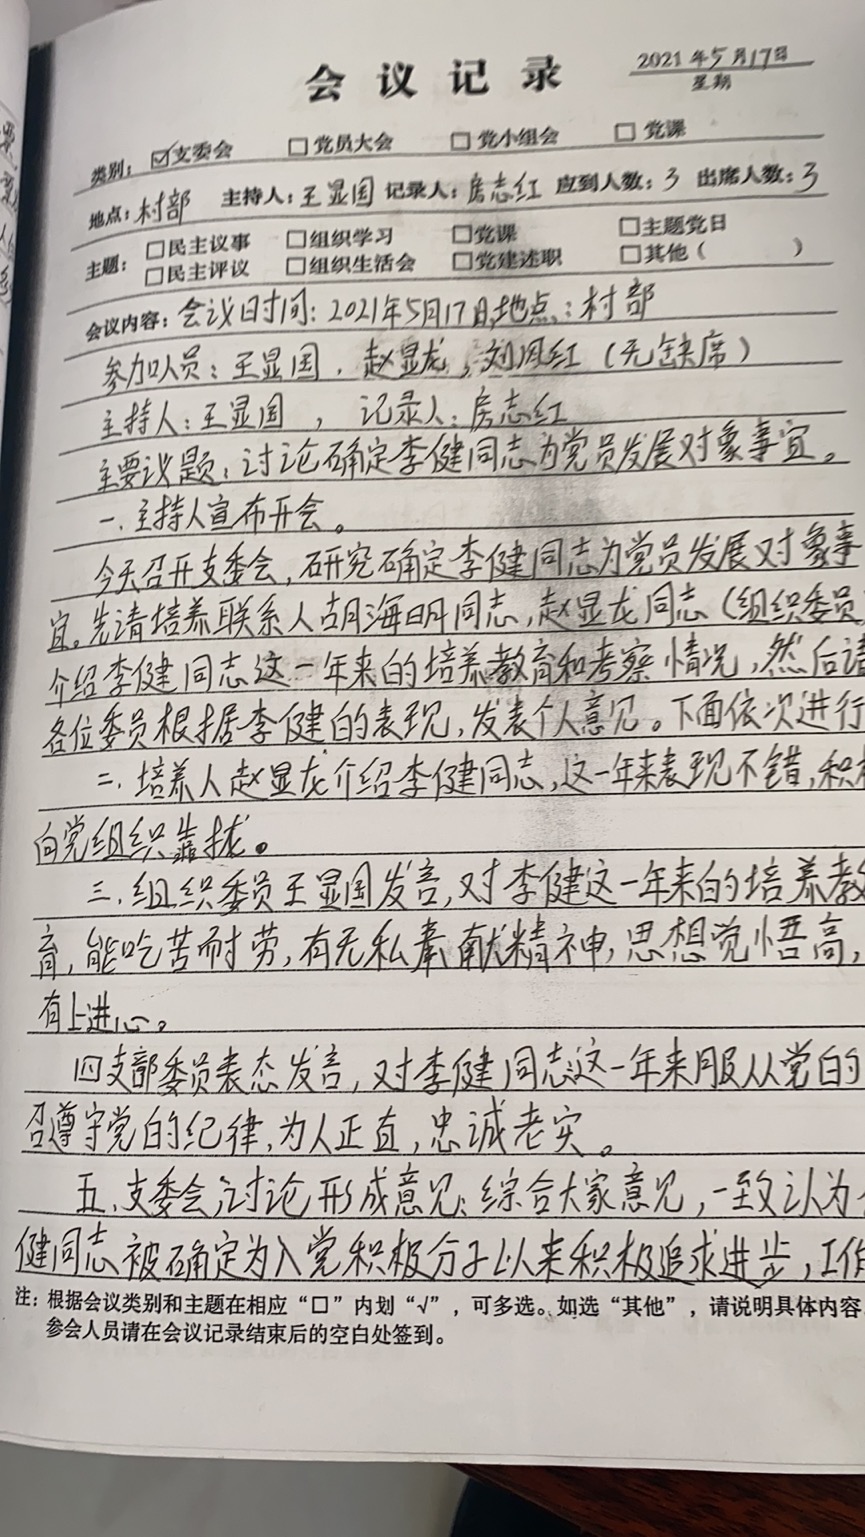 会议记录
2021年5月17日
星期
类别: ☑支委会 □党员大会 □党小组会 □党课
地点:村部 主持人:王显国 记录人:房志红 应到人数:3 出席人数:3
主题: □民主议事 □组织学习 □党课 □主题党日
□民主评议 □组织生活会 □党建述职 □其他( )
会议内容:会议日时间:2021年5月17日,地点:村部
参加人员:王显国,赵显龙,刘凤红(无缺席)
主持人:王显国,记录人:房志红
主要议题:讨论确定李健同志为党员发展对象事宜。
一.主持人宣布开会。
今天召开支委会,研究确定李健同志为党员发展对象事
宜。先请培养联系人胡海明同志,赵显龙同志(组织委员
介绍李健同志这一年来的培养教育和考察情况,然后请
各位委员根据李健的表现,发表个人意见。下面依次进行
二.培养人赵显龙介绍李健同志,这一年来表现不错,积极
向党组织靠拢。
三.组织委员王显国发言,对李健这一年来的培养教
育,能吃苦而耐劳,有无私奉献精神,思想觉悟高,
有上进心。
四支部委员表态发言,对李健同志这一年来服从党的
召遵守党的纪律,为人正直,忠诚老实。
五、支委会讨论形成意见:综合大家意见,一致认为
健同志被确定为入党积极分子以来积极追求进步,工作
注:根据会议类别和主题在相应“□”内划“√”,可多选。如选“其他”,请说明具体内容
参会人员请在会议记录结束后的空白处签到。